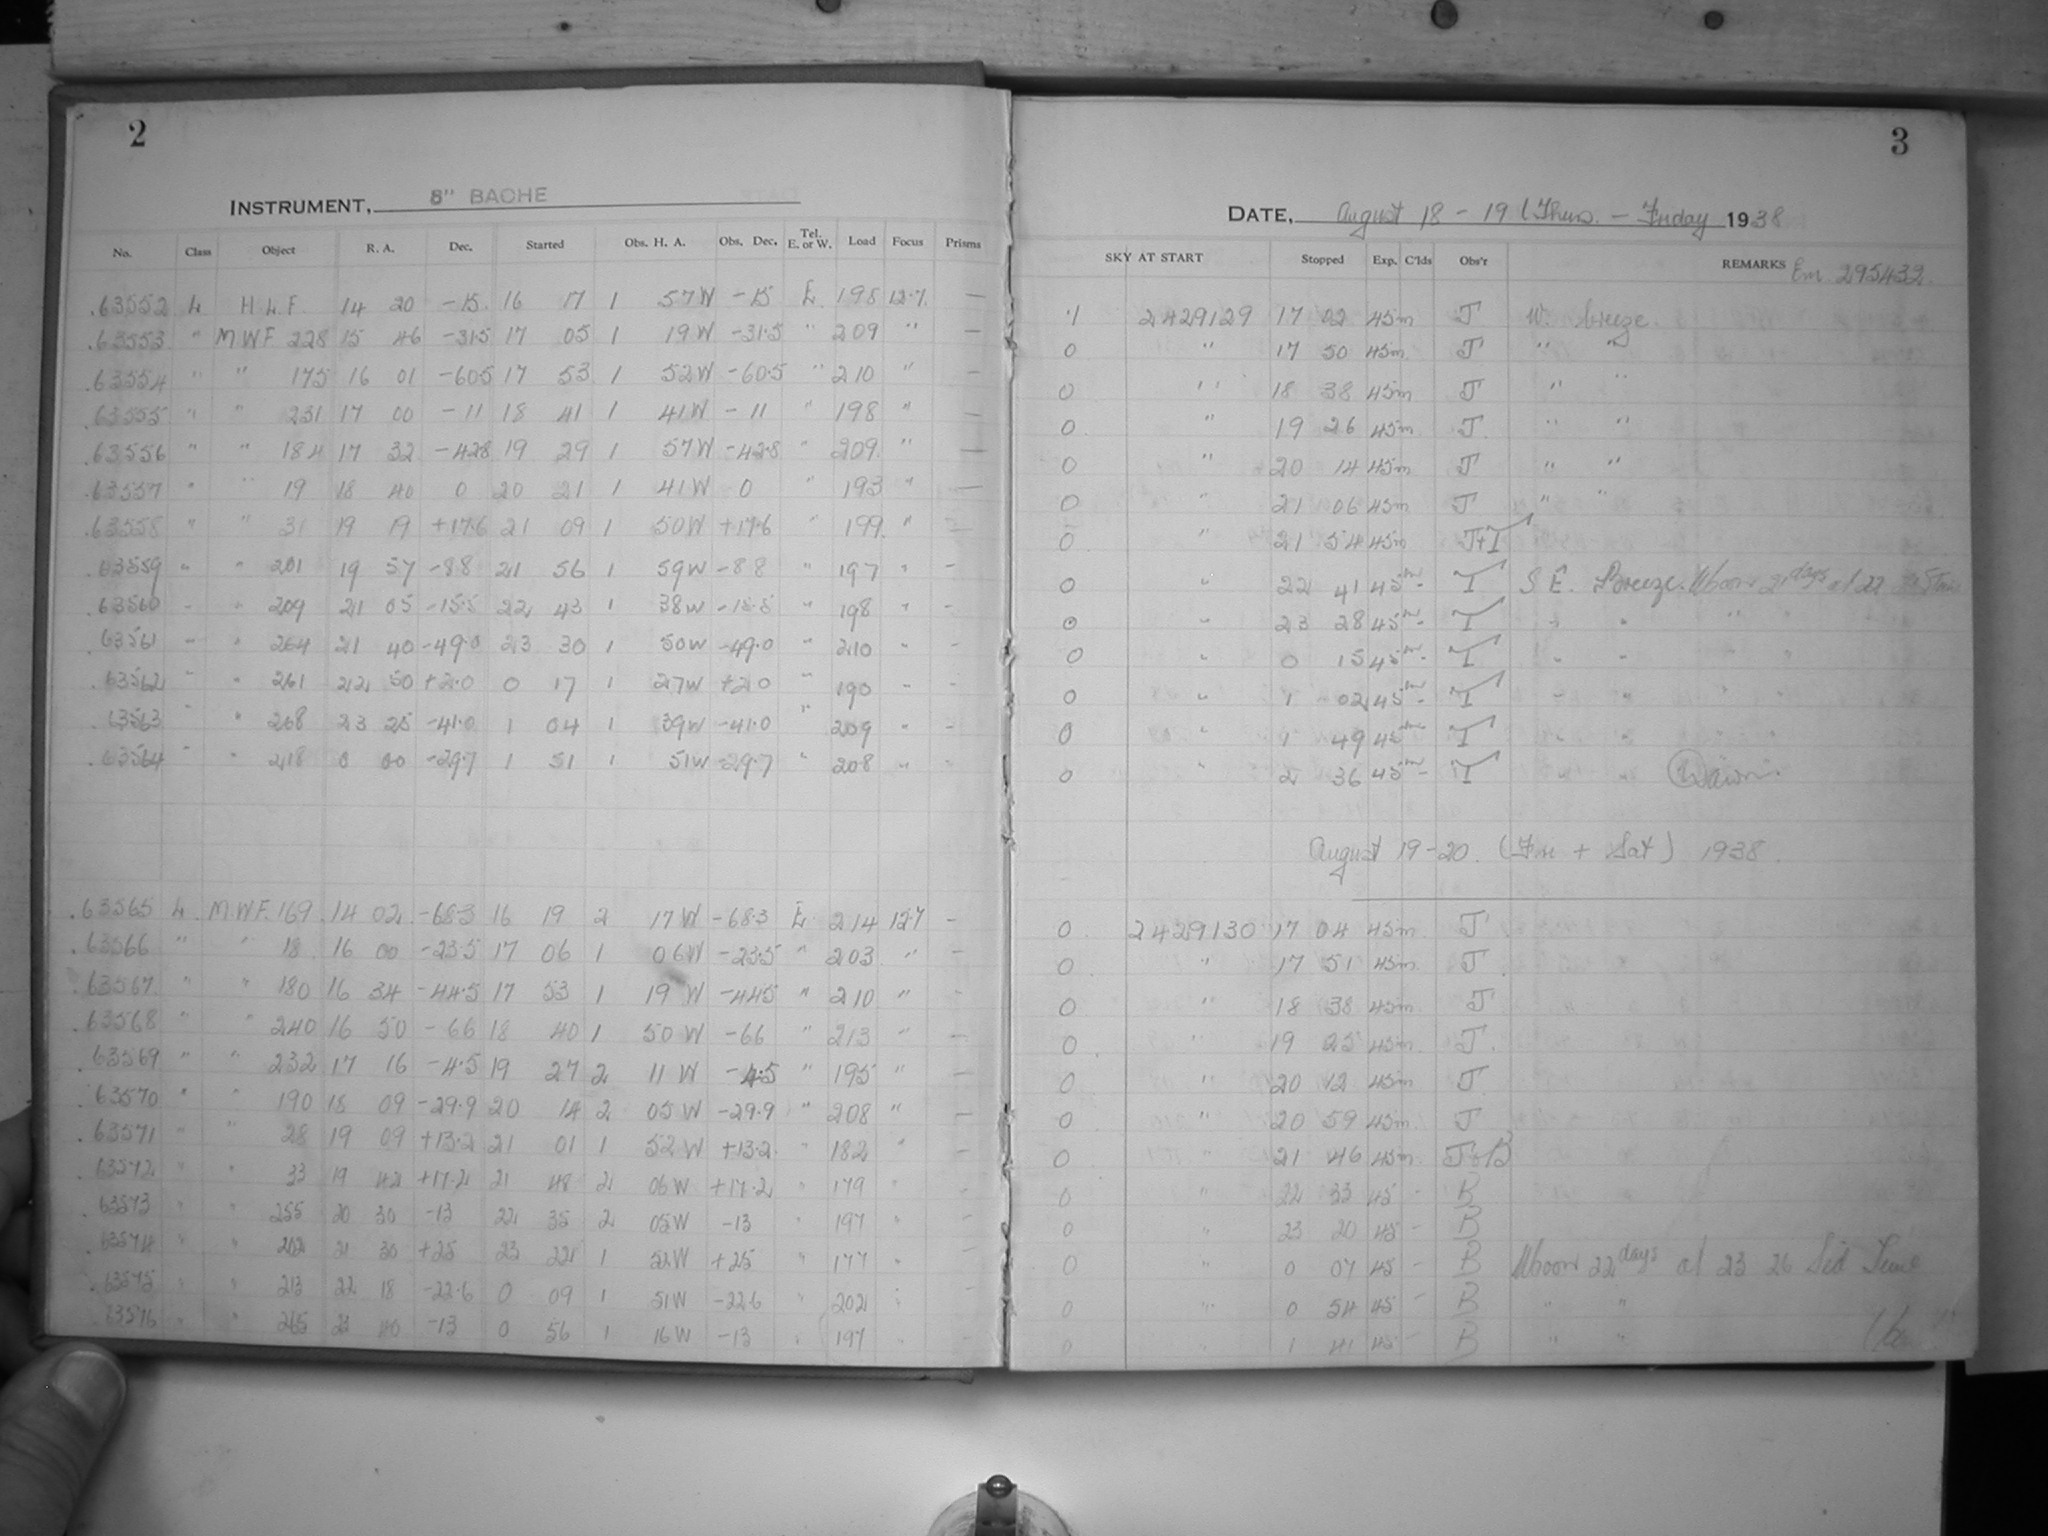 2
INSTRUMENT, 8" BACHE
No. Class Object R. A. Dec. Started Obs. H. A. Obs. Dec. Tel. E. or W. Load Focus Prisms
.63552 L H L F 14 20 -15 16 17 1 57W -15 E 198 12.7 —
.63553 " M W F 228 15 46 -31.5 17 05 1 19W -31.5 " 209 " —
.63554 " " 175 16 01 -60.5 17 53 1 52W -60.5 " 210 " —
.63555 " " 231 17 00 -11 18 41 1 41W -11 " 198 " —
.63556 " " 184 17 32 -42.8 19 29 1 57W -42.8 " 209 " —
.63557 " " 19 18 40 0 20 21 1 41W 0 " 193 " —
.63558 " " 31 19 19 +17.6 21 09 1 50W +17.6 " 199 " —
.63559 " " 201 19 57 -8.8 21 56 1 59W -8.8 " 197 " -
.63560 " " 209 21 05 -15.5 22 43 1 38W -15.5 " 198 " -
.63561 " " 264 21 40 -49.0 23 30 1 50W -49.0 " 210 " -
.63562 " " 261 22 50 +2.0 0 17 1 27W +2.0 " 190 " -
.63563 " " 268 23 25 -41.0 1 04 1 39W -41.0 " 209 " -
.63564 " " 218 0 00 -29.7 1 51 1 51W -29.7 " 208 " -
.63565 L M.W.F. 169 14 02 -68.3 16 19 2 17W -68.3 E 214 12.7 -
.63566 " " 18 16 00 -23.5 17 06 1 06W -23.5 " 203 " -
.63567 " " 180 16 34 -44.5 17 53 1 19 W -44.5 " 210 " -
.63568 " " 240 16 50 -66 18 40 1 50 W -66 " 213 " -
.63569 " " 232 17 16 -4.5 19 27 2 11 W -4.5 " 195 " -
.63570 " " 190 18 09 -29.9 20 14 2 05W -29.9 " 208 " -
.63571 " " 28 19 09 +13.2 21 01 1 52W +13.2 " 182 " -
.63572 " " 33 19 42 +17.2 21 48 2 06W +17.2 " 179 " -
.63573 " " 255 20 30 -13 22 35 2 05W -13 " 197 " -
.63574 " " 202 21 30 +25 23 22 1 52W +25 " 177 " -
.63575 " " 213 22 18 -22.6 0 09 1 51W -22.6 " 202 " -
.63576 " " 265 23 40 -13 0 56 1 16W -13 " 197 " -
3
DATE, August 18 - 19 (Thurs. - Friday 1938
SKY AT START Stopped Exp. C'lds Obs'r REMARKS Em. 295432.
1 2429129 17 02 45m J W. breeze.
0 " 17 50 45m J " "
0 " 18 38 45m J " "
0 " 19 26 45m J " "
0 " 20 14 45m J " "
0 " 21 06 45m J " "
0 " 21 54 45m J+T
0 " 22 41 45m - T S E. Breeze. Moon 21 days at 22
0 " 23 28 45m - T " " " "
0 " 0 15 45m - T " "
0 " 1 02 45m - T " "
0 " 1 49 45m T " "
0 " 2 36 45m - T " " (Dawn.
August 19-20. (Fri + Sat) 1938
0 2429130 17 04 45m J
0 " 17 51 45m J
0 " 18 38 45m J
0 " 19 25 45m J.
0 " 20 12 45m J
0 " 20 59 45m J
0 " 21 46 45m J+B
0 " 22 33 45 - B
0 " 23 20 45 - B
0 " 0 07 45 - B Moon 22 days at 23 26 Sid Time
0 " 0 54 45 - B " "
0 " 1 41 45 - B " "